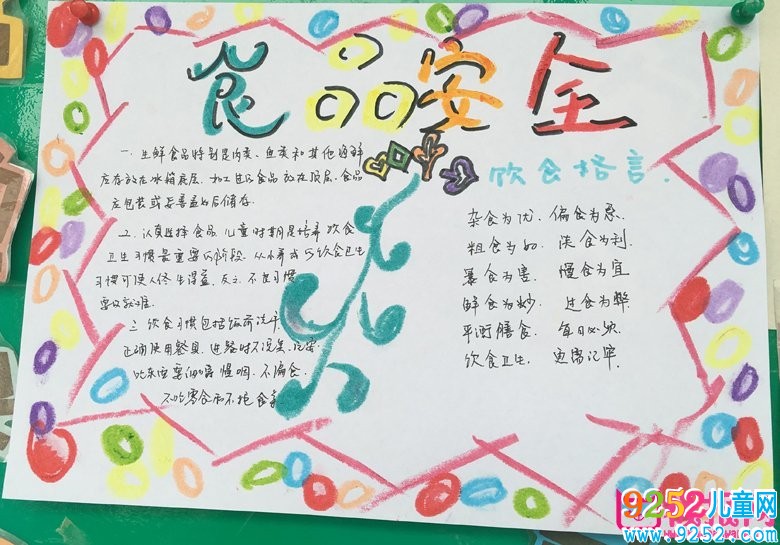 食品安全
一、生鲜食品特别是肉类、鱼类和其他海鲜
应存放在冰箱底层、加工过的食品放在顶层、食品
应包装或妥善盖好后储存.
二、认真选择食品、儿童时期是培养饮食
卫生习惯最重要的阶段、从小养成的饮食卫生
习惯可使人终生得益、反之、不良习惯
要改就难.
三、饮食习惯包括饭前洗手、
正确使用餐具、进餐时不说笑、
吃东西要细嚼慢咽、不偏食、
不吃零食和不挑食等
饮食格言.
杂食为优、偏食为忌.
粗食为好、淡食为利.
暴食为害、慢食为宜
鲜食为妙、过食为弊.
平衡膳食、每日必须
饮食卫生、更需记牢.
9252儿童网
www.9252.com